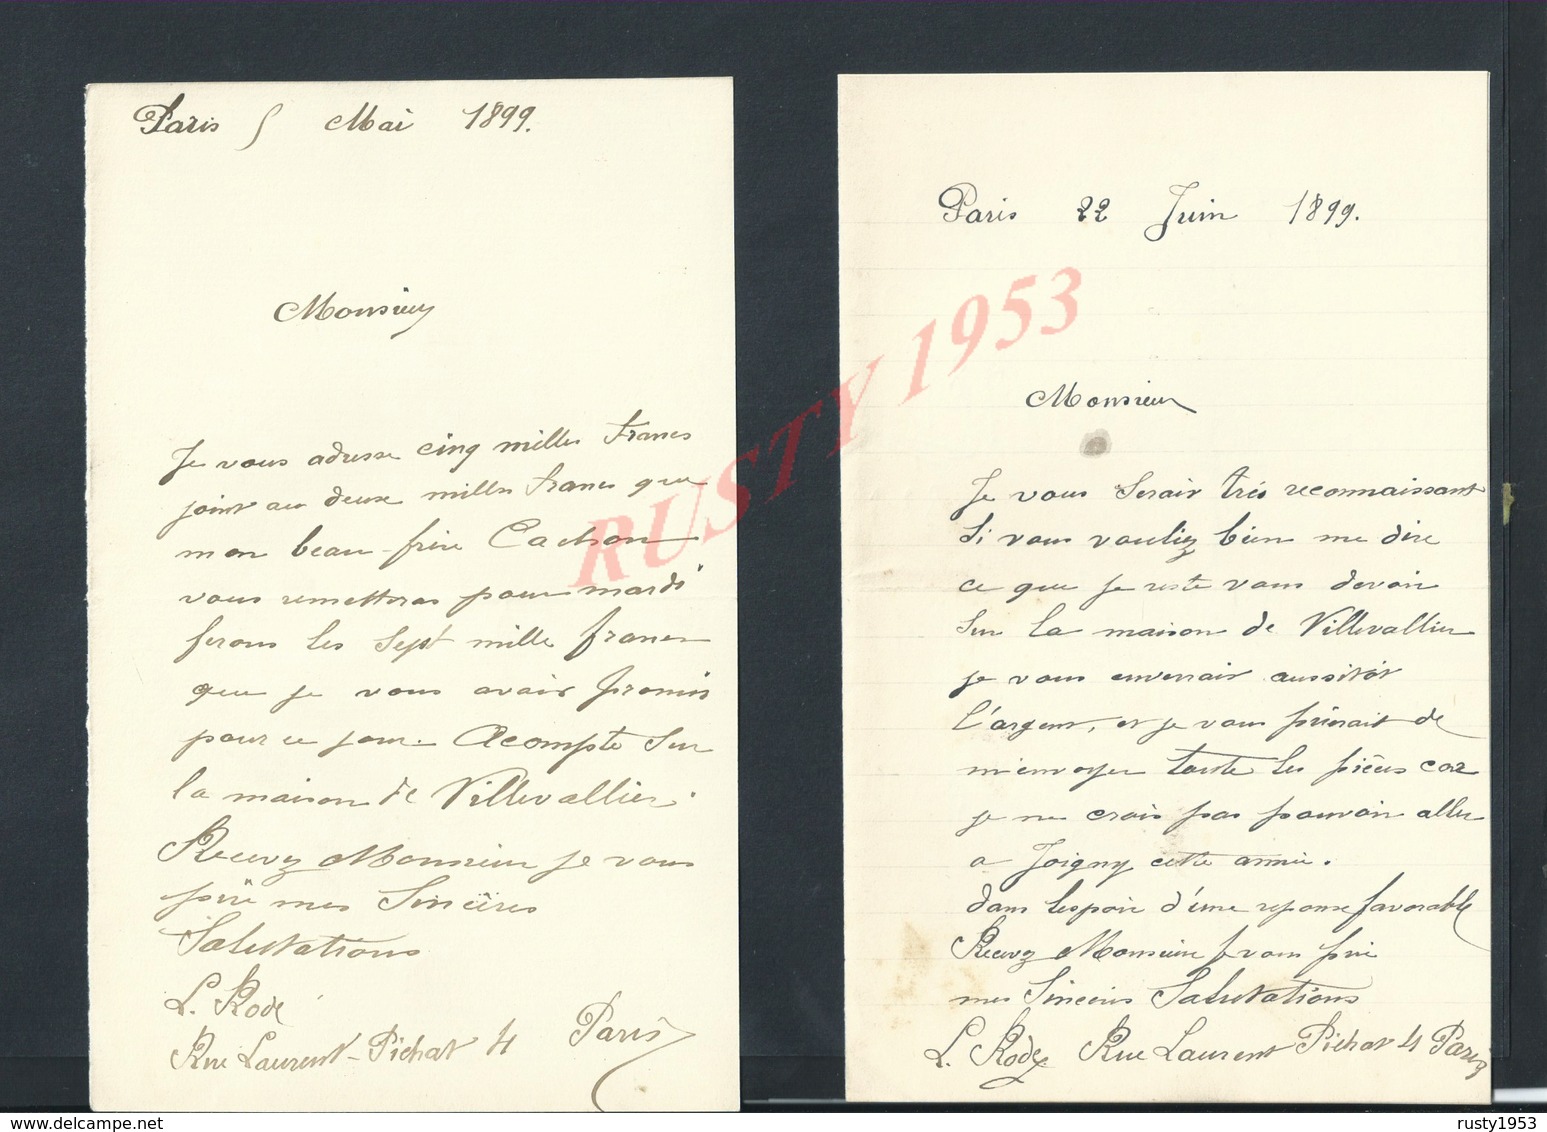 Paris 5 Mai 1899.
Monsieur
Je vous adresse cinq milles francs
joint au deux milles francs que
mon beau-frère Cachon
vous remetteras pour mardi
ferons les Sept mille francs
que je vous avais promis
pour ce jour. Acompte sur
la maison de Villevallier.
Recevez Monsieur je vous
prie mes Sincères
Salutations
L. Rodé
Rue Laurent-Pichat 4 Paris
Paris 22 Juin 1899.
Monsieur
Je vous Serais très reconnaissant
Si vous vouliez bien me dire
ce que je reste vous devoir
Sur la maison de Villevallier
je vous enverrais aussitôt
l'argent, et je vous prierait de
m'envoyer toute les pièces car
je ne crois pas pouvoir aller
a Joigny cette année.
dans lespoir d'une reponse favorable
Recevez Monsieur je vous prie
mes Sincères Salutations
L. Rodé Rue Laurent Pichat 4 Paris
RUSTY 1953
www.delcampe.net
rusty1953